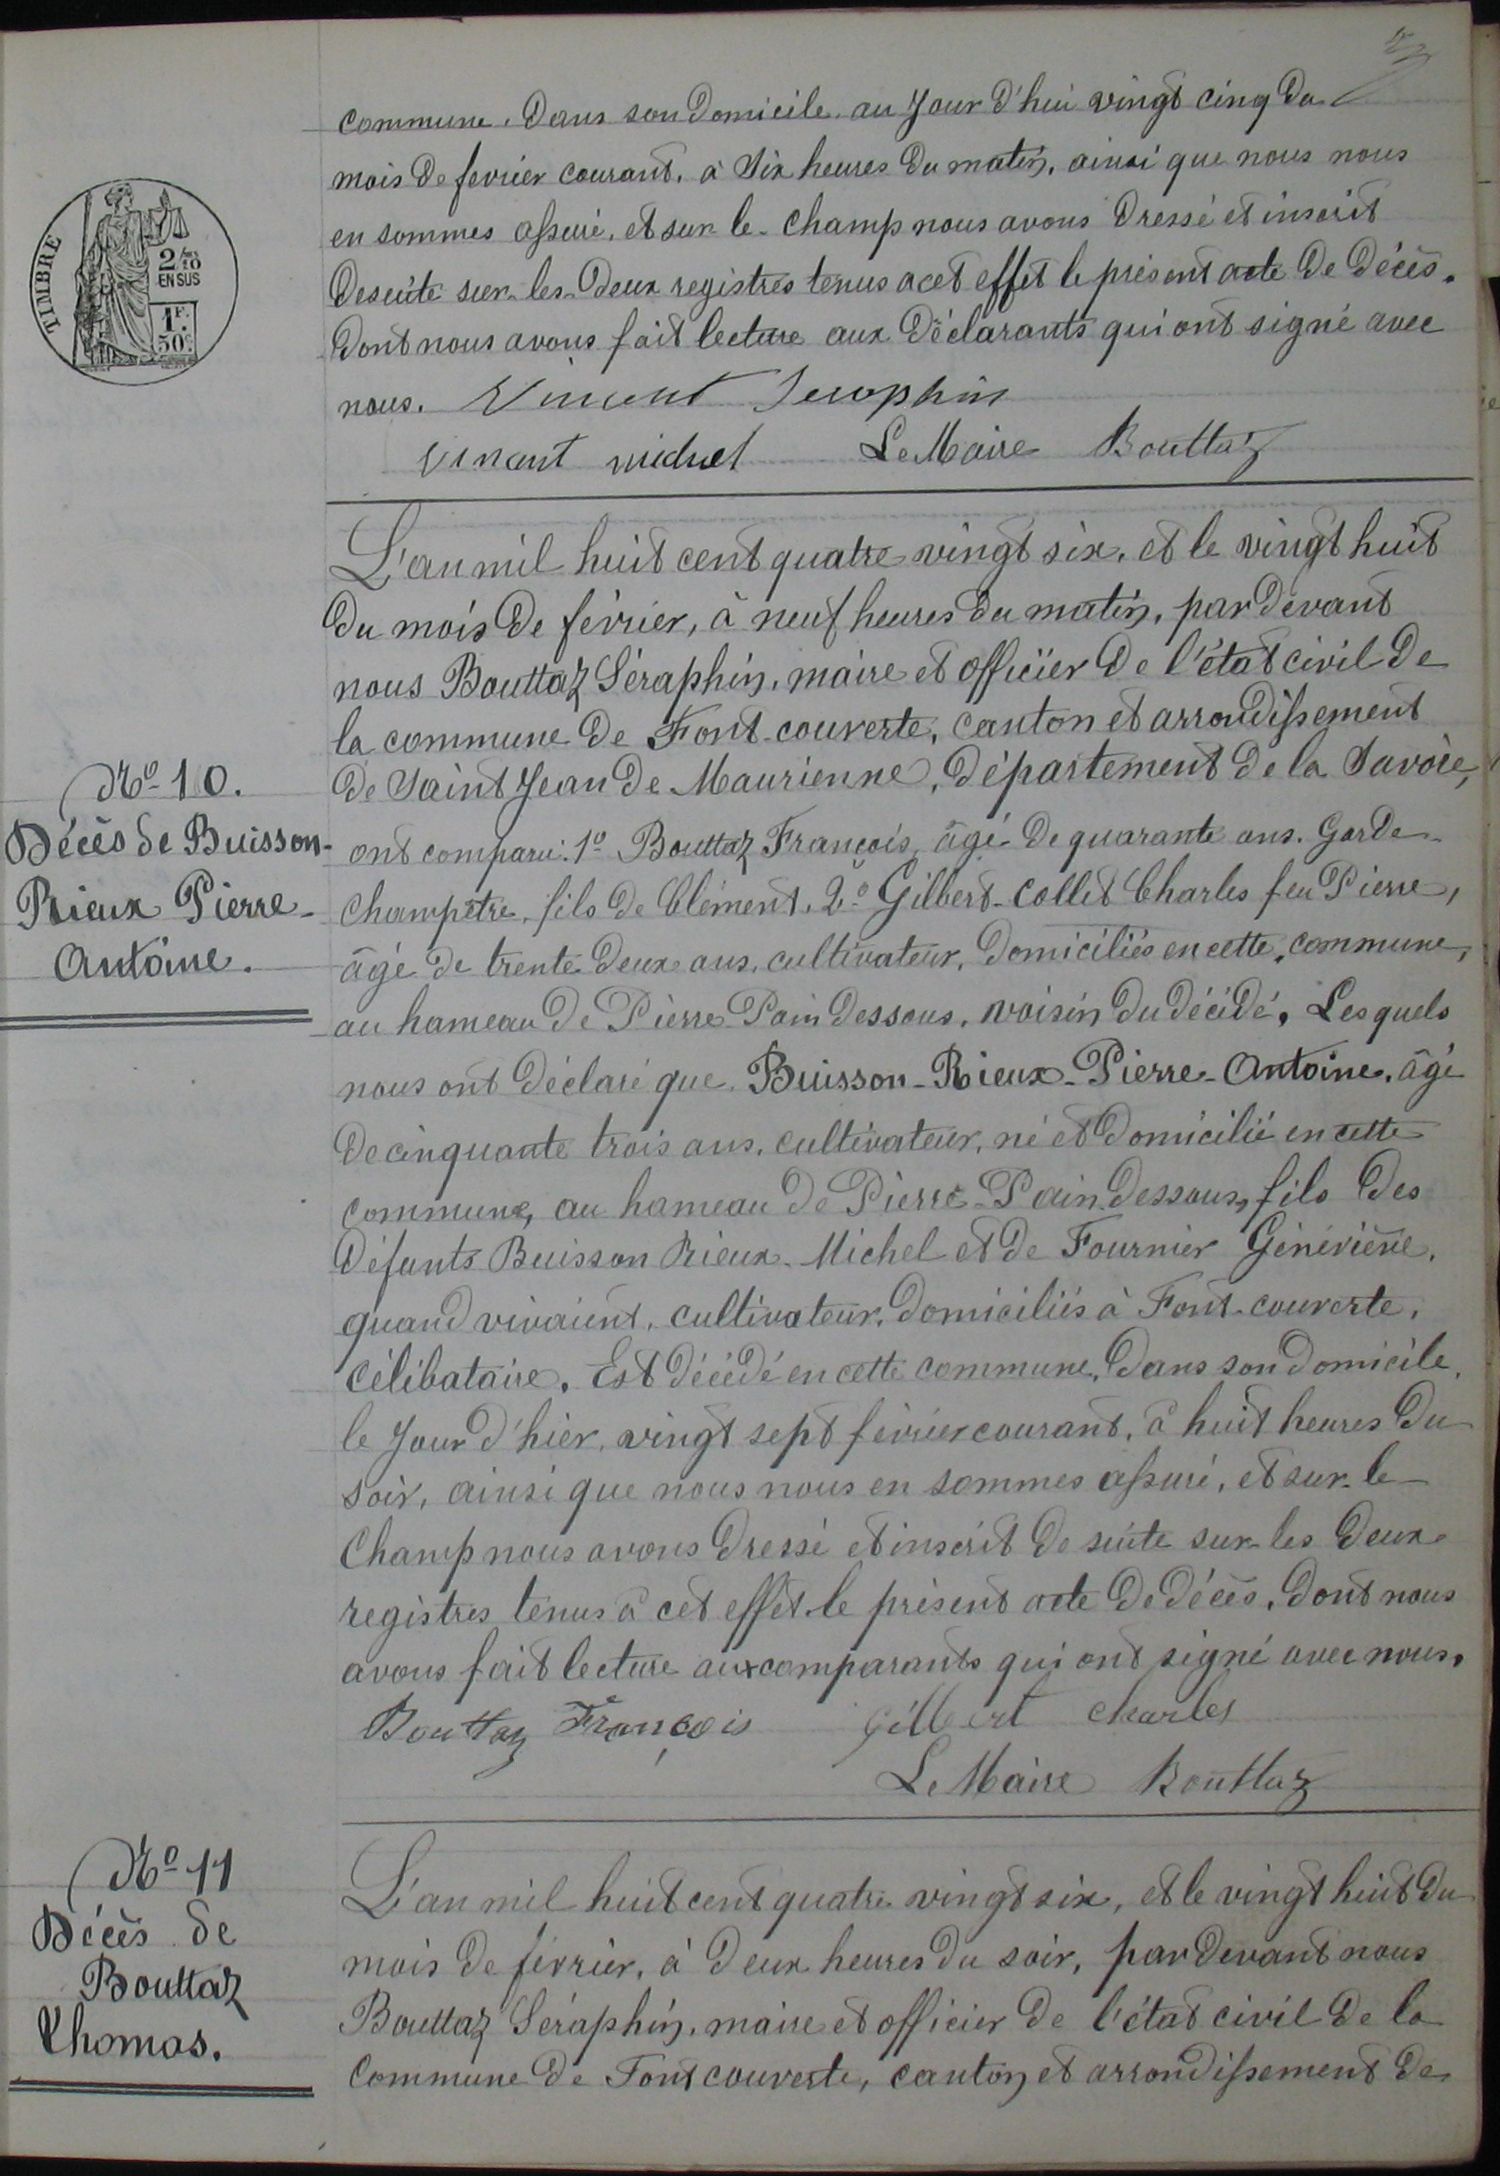 commune. Dans son Domicile. au Jour d'hui vingt cinq du
mois de fevrier courant. à Six heures du matin, ainsi que nous nous
en sommes assuré, et sur le-champ nous avons Dressé et inscrit
Desuite sur-les-Deux registres tenus acet effet le présent acte De Décès.
Dont nous avons fait lecture aux Déclarants qui ont signé avec
nous. Vincent Seraphin
vinant michel Le Maire Bouttaz
TIMBRE
2/10
EN SUS
1F.
50c
L'an mil huit cent quatre vingt six, et le vingt huit
Du mois De février, à neuf heures du matin, par devant
nous Bouttaz Séraphin, maire et officier De l'état civil De
la commune De Font-couverte, canton et arrondissement
De Saint Jean De Maurienne, Département De la Savoie,
No 10.
Décès de Buisson-
Rieux Pierre-
Antoine.
ont comparu: 1o Bouttaz François, âgé De quarante ans. Garde
Champêtre, fils De Clément. 2o Gilbert-Collet Charles feu Pierre,
âgé De trente Deux ans, cultivateur, Domiciliés en cette commune,
au hameau De Pierre-Pain Dessous, voisin Du décédé. Lesquels
nous ont Déclaré que Buisson-Rieux-Pierre-Antoine. âgé
De cinquante trois ans, cultivateur, né et Domicilié en cette
commune, au hameau De Pierre-Pain Dessous, fils Des
Défunts Buisson Rieux-Michel et De Fournier Généviève,
quand vivaient, cultivateur, Domiciliés à Font-couverte,
célibataire. Est Décédé en cette commune, Dans son Domicile,
le Jour d'hier, vingt sept février courant, à huit heures Du
soir, ainsi que nous nous en sommes assuré, et sur-le
Champ nous avons Dressé et inscrit De suite sur-les Deux
registres tenus à cet effet-le présent acte De Décès, Dont nous
avons fait lecture aux comparants qui ont signé avec nous.
Bouttaz François Gilbert charles
Le Maire Bouttaz
No 11
Décès de
Bouttaz
Thomas.
L'an mil huit cent quatre vingt six, et le vingt huit Du
mois De février, à Deux heures Du soir, par devant nous
Bouttaz Séraphin, maire et officier De l'état civil De la
Commune De Font couverte, canton et arrondissement De